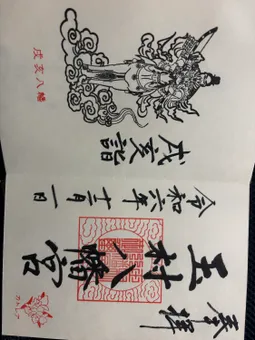 奉拝
玉村八幡宮
令和六年十二月一日
戌亥詣
戌亥八幡